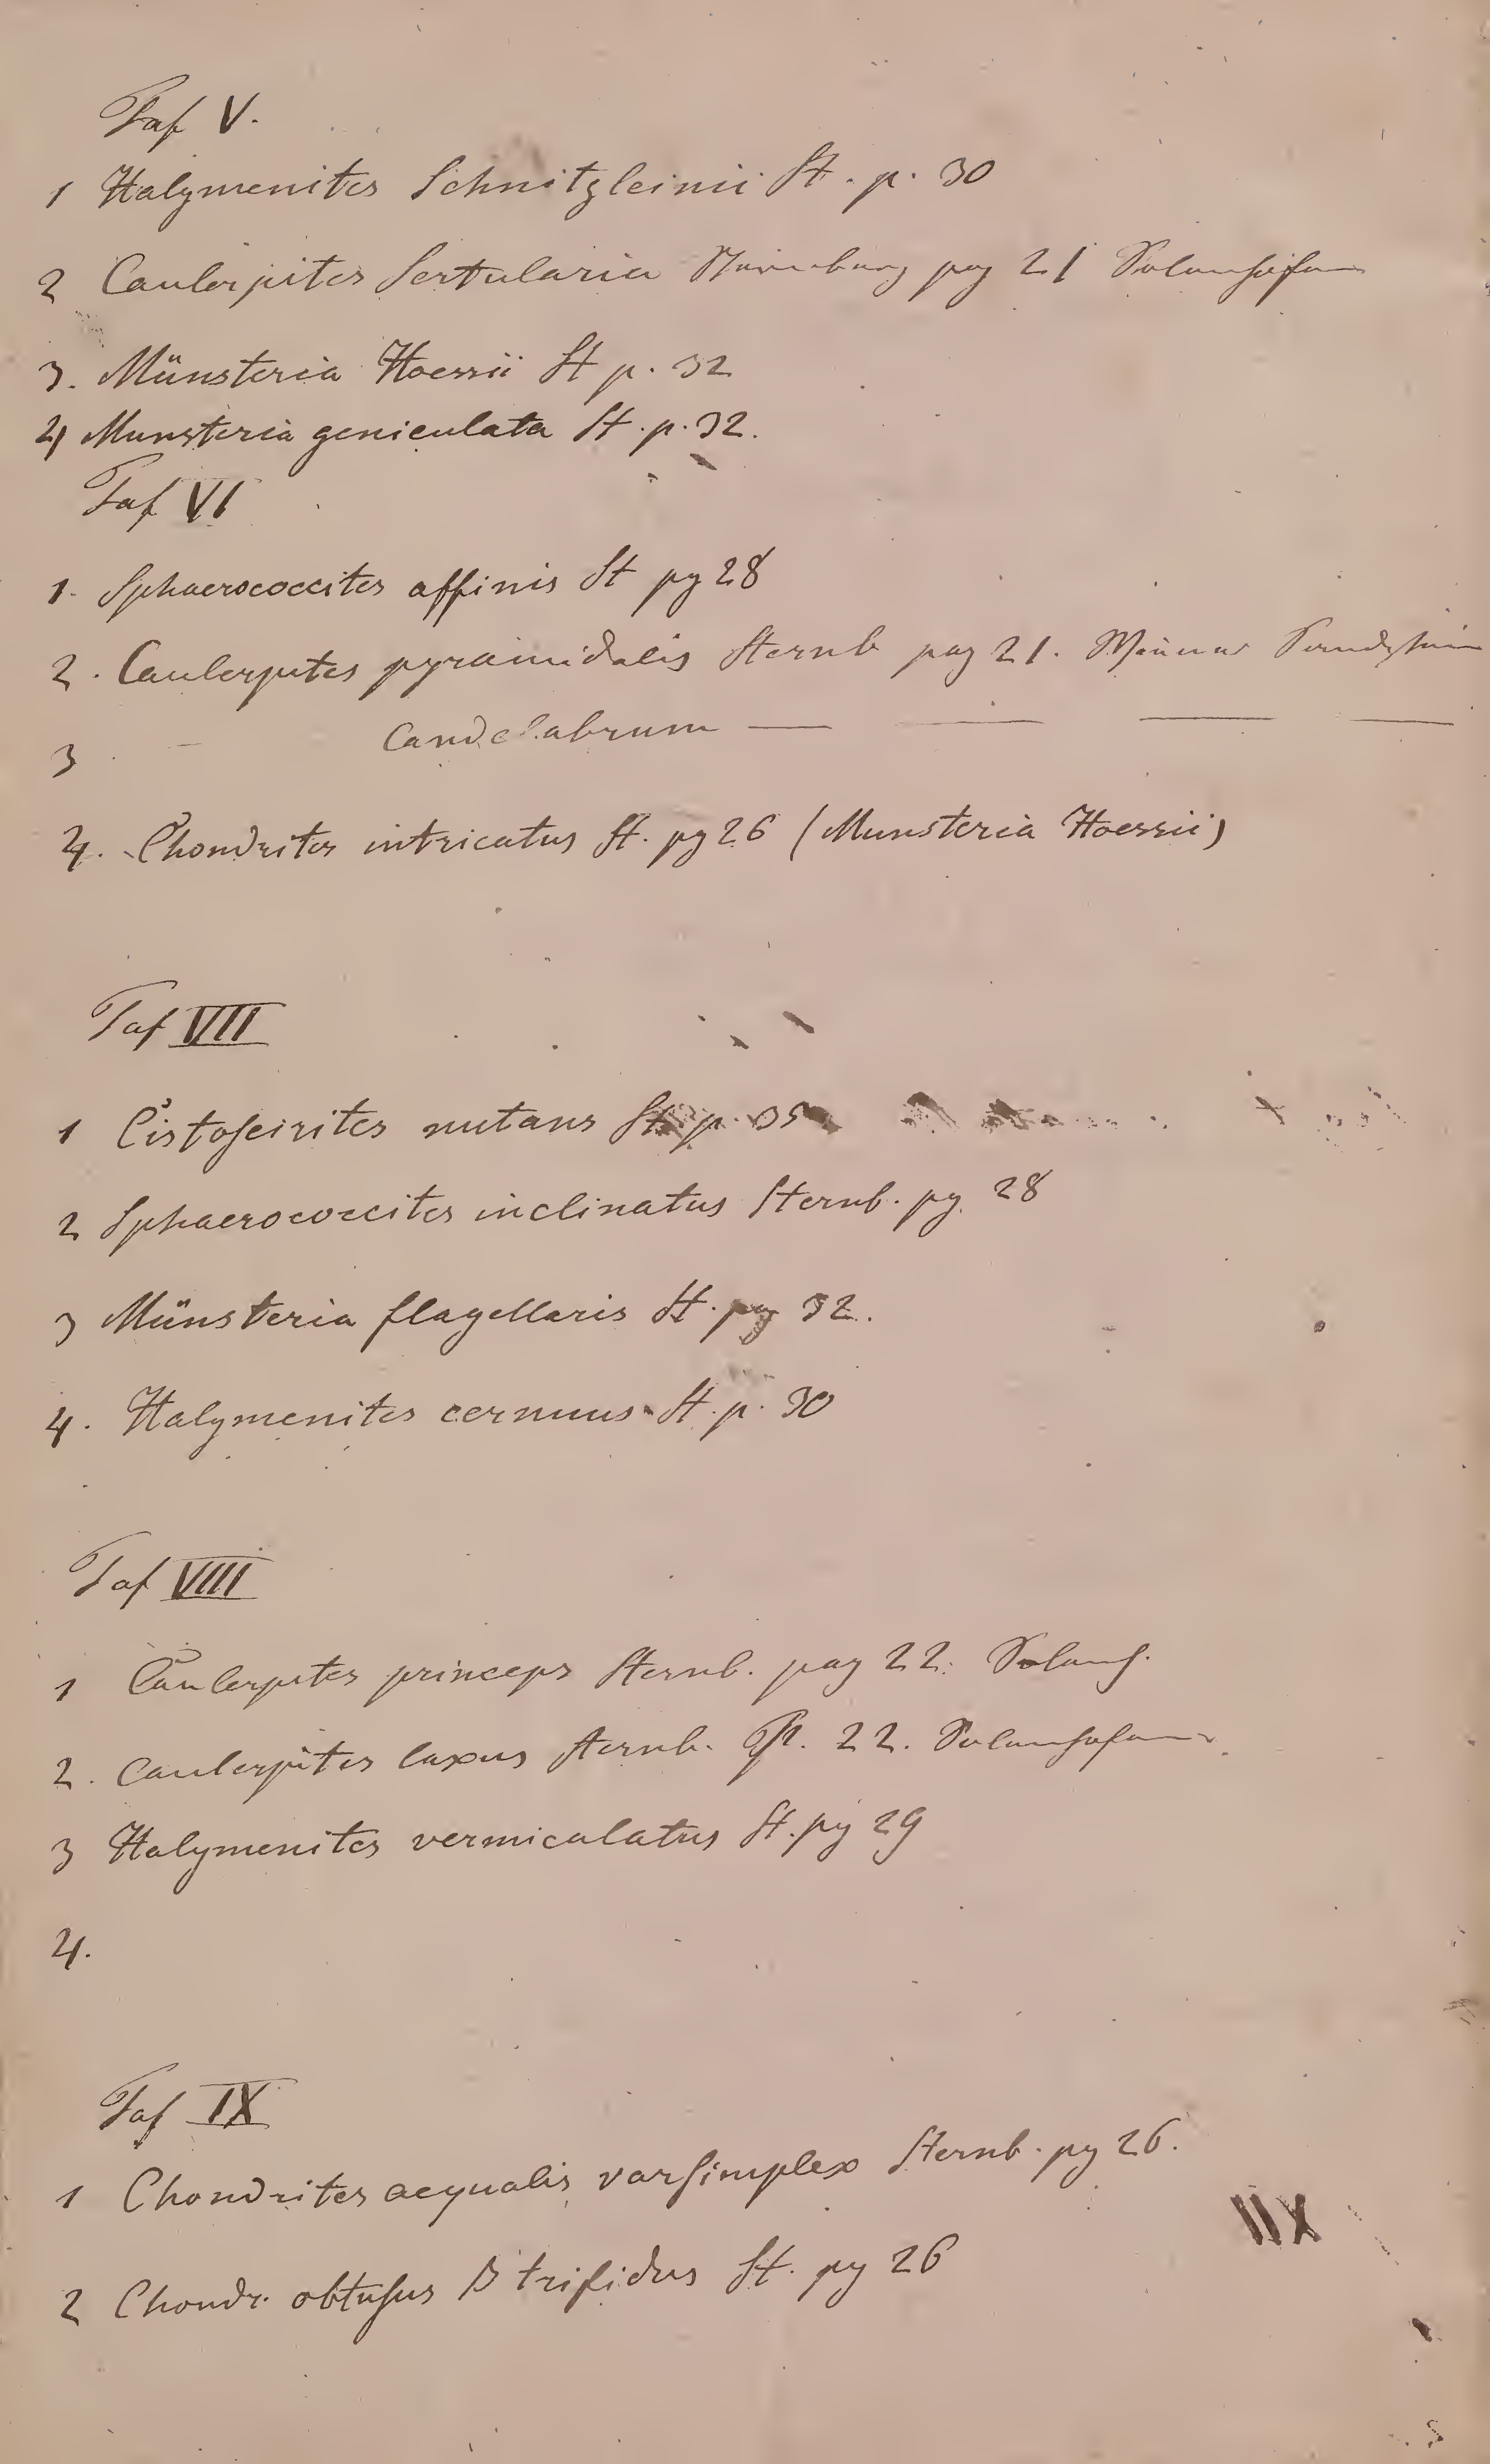 Taf V.
1 Halymenites Schnitzleinii St. p. 30
2 Caulerpites Sertularia Sternberg pag 21 Solenhofen
3. Münsteria Hoessii St p. 32
4 Munsteria geniculata St. p. 32.
Taf VI
1. Sphaerococcites affinis St pg 28
2. Caulerpites pyramidalis Sternb pag 21. Wiener Sandstein
3 — Candelabrum — — — —
4. Chondrites intricatus St. pg 26 (Munsteria Hoessii)
Taf VII
1 Cistoseirites nutans St. p. 35
2 Sphaerococcites inclinatus Sternb. pg. 28
3 Münsteria flagellaris St. pg 32.
4. Halymenites cernuus St. p. 30
Taf VIII
1 Caulerpites princeps Sternb. pag 22. Solenh.
2. Caulerpites laxus Sternb. p. 22. Solenhofen
3 Halymenites vermiculatus St. pg 29
4.
Taf IX
1 Chondrites aequalis var simplex Sternb. pg 26.
IIX
2 Chondr. obtusus B trifidus St. pg 26